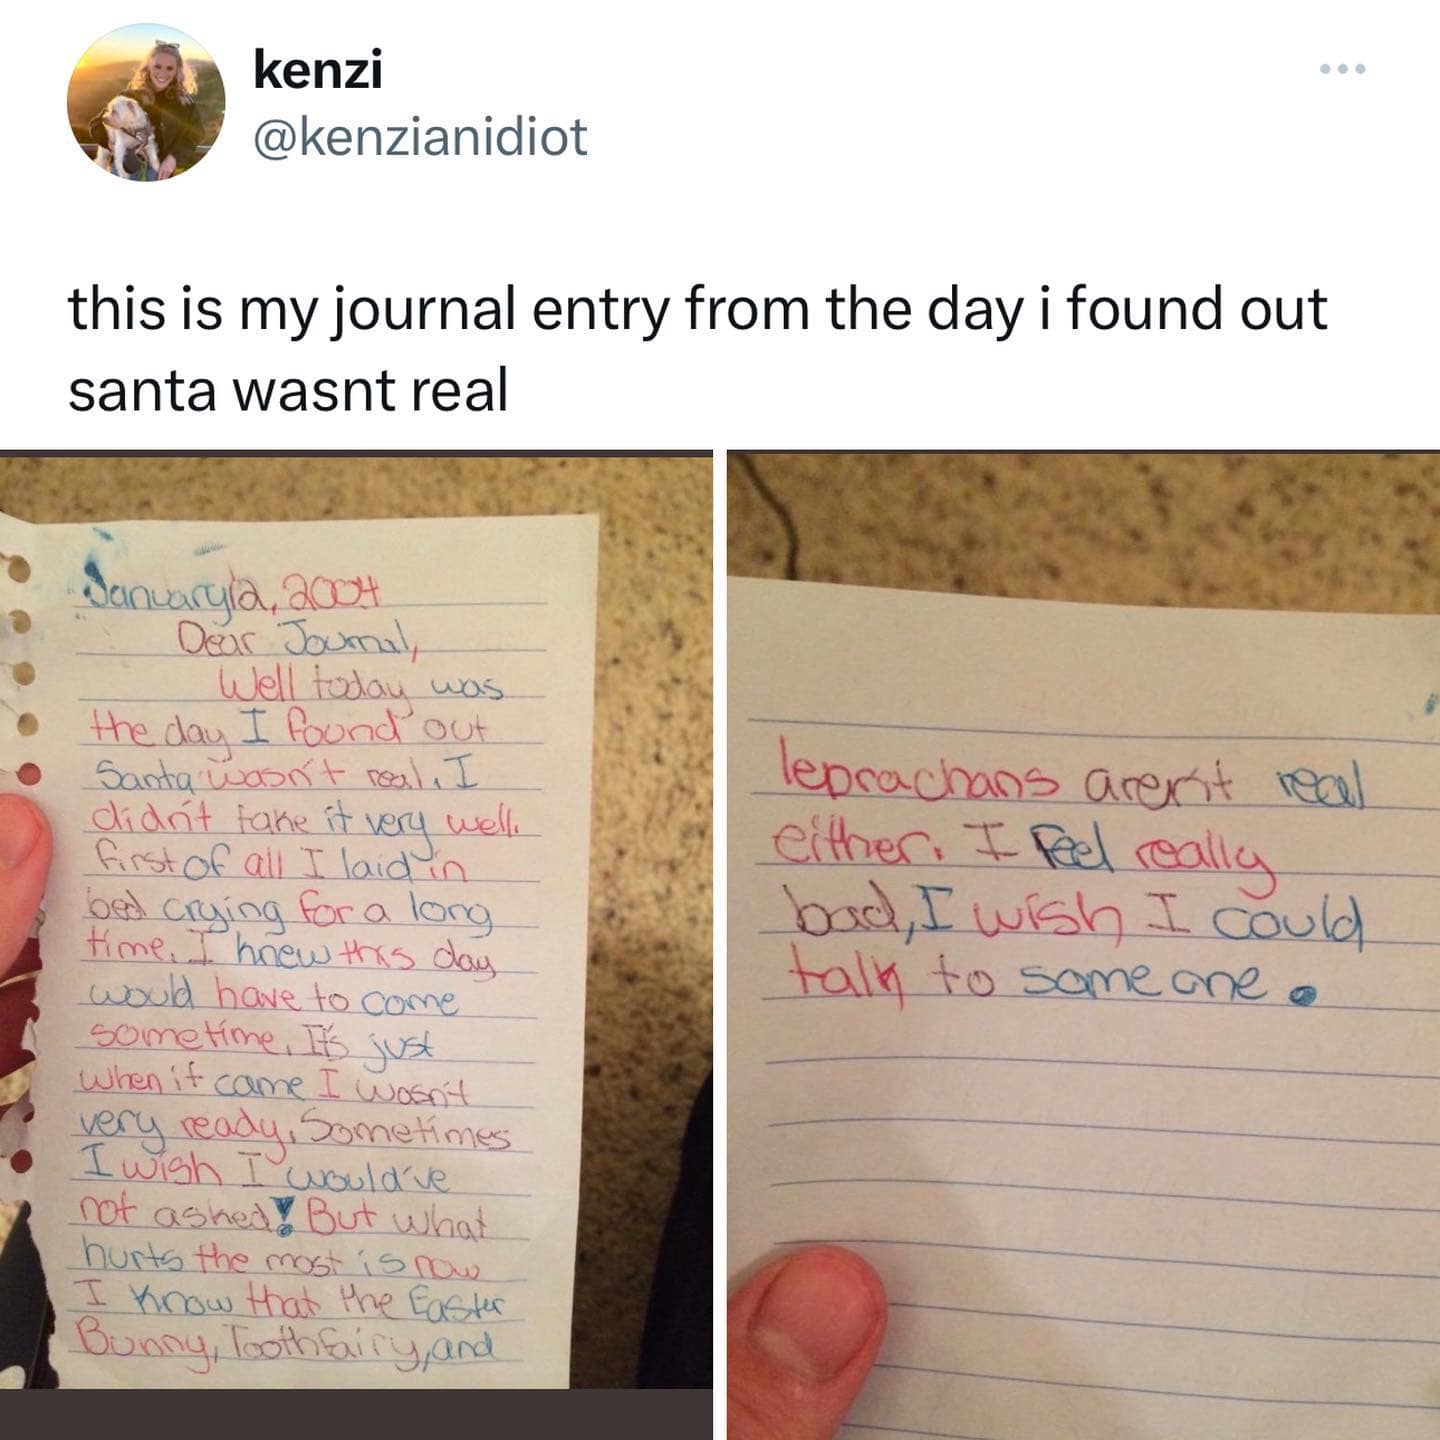 kenzi
@kenzianidiot
this is my journal entry from the day i found out
santa wasnt real
January 12, 2004
Dear Journal,
Well today was
the day I found out
Santa wasn't real. I
didn't take it very well.
first of all I laid in
bed crying for a long
time. I knew this day
would have to come
sometime. It's just
when it came I wasn't
very ready. Sometimes
I wish I would've
not asked! But what
hurts the most is now
I know that the Easter
Bunny, Toothfairy, and
leprachans aren't real
either. I feel really
bad, I wish I could
talk to someone.